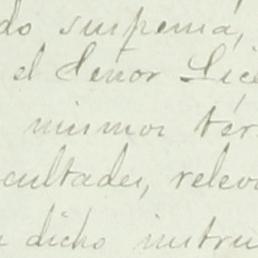 do suprema,
el Señor Lice
mismos tér
cultades, relev
dicho instru